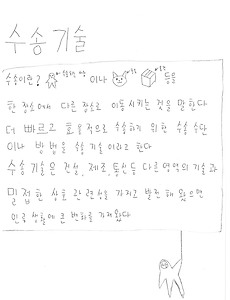 수송 기술
수송이란? 이나 등을
한 장소에서 다른 장소로 이동시키는 것을 말한다
더 빠르고 효율적으로 수송하기 위한 수송 수단
이나 방법을 수송 기술이라고 한다
수송 기술은 건설, 제조, 통신등 다른 영역의 기술과
밀접한 상호 관련성을 가지고 발전해 왔으면
인류 생활에 큰 변화를 가져왔다